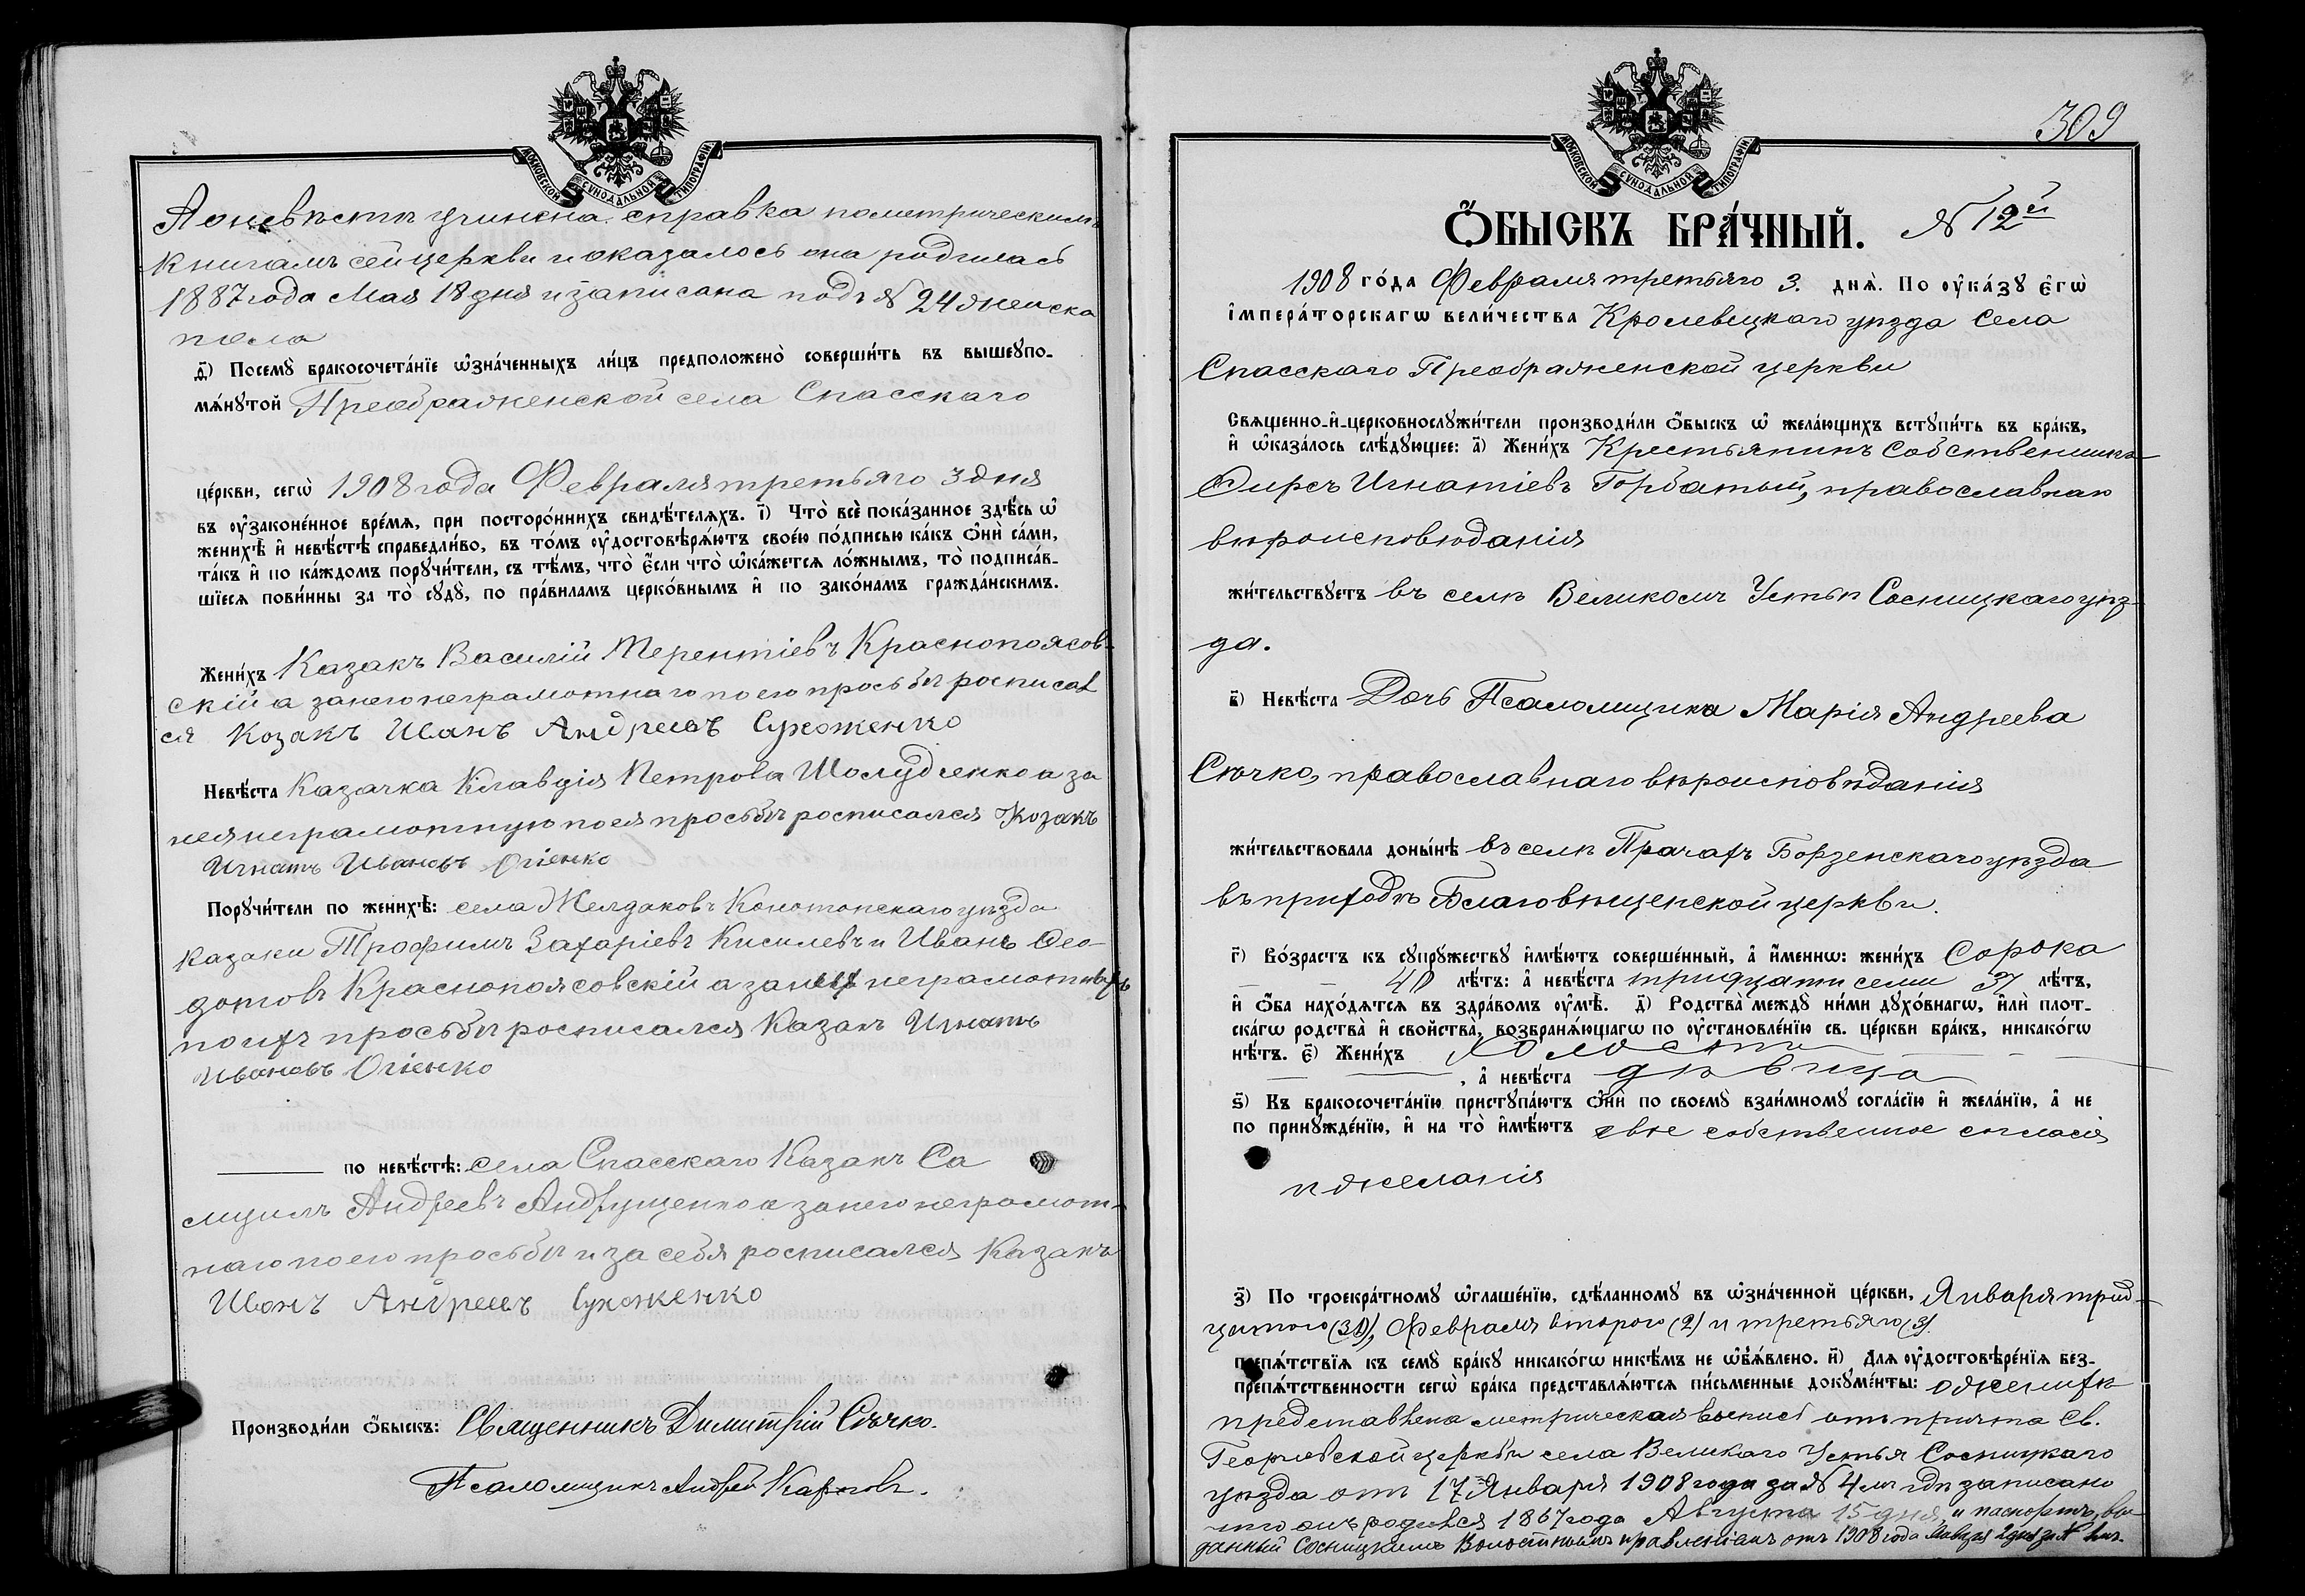 МОСКОВСКОЙ СѴНОДАЛЬНОЙ ТИПОГРАФІИ
А о невѣстѣ учинена справка по метрическимъ
книгамъ сей церкви и оказалось она родилась
1887 года Мая 18 дня и записана подъ № 24 женска
пола
д҃) Посемꙋ бракосочета́нїе ѡ҆зна́ченныхъ ли́цъ предположено̀ соверши́ть въ вышеꙋпо-
мѧ́нꙋтой Преображенской села Спасскаго
це́ркви, сегѡ̀ 1908 года Февраля третьяго 3 дня
въ оу҆зако́не́нное вре́мѧ, при посторо́ннихъ свидѣ́телѧхъ. і҃) Что̀ всѐ пока́занное здѣ́сь ѡ҆
женихѣ̀ и҆ невѣ́стѣ справедли́во, въ то́мъ оу҆достовѣрѧ́ютъ свое́ю по́дписью ка́къ ѻ҆нѝ са́ми,
та́къ и҆ по ка́ждомъ порꙋчи́тели, съ тѣ́мъ, что̀ є҆́сли что̀ ѡ҆ка́жетсѧ ло́жнымъ, то̀ подписа́в-
шїесѧ пови́нны за то̀ сꙋдꙋ̀, по пра́виламъ церко́внымъ и҆ по зако́намъ гражда́нскимъ.
Жени́хъ Казакъ Василій Терентіевъ Краснопоясов-
скій а за него неграмотнаго по его просьбѣ росписал
ся Козакъ Иванъ Андреевъ Сухоженко
Невѣ́ста Казачка Клавдія Петрова Шолудченко а за
нея неграмотную по ея просьбѣ росписался Козакъ
Игнатъ Ивановъ Огіенко
Порꙋчи́тели по женихѣ̀: села Желдаковъ Конотопскаго уѣзда
казаки Трофимъ Захаріевъ Кисилевъ и Иванъ Ѳео-
дотовъ Краснопоясовскій а за нихъ неграмотныхъ
по ихъ просьбѣ росписался Казакъ Игнатъ
Ивановъ Огіенко
по невѣ́стѣ: села Спасскаго Казакъ Са
муилъ Андреевъ Андрущенко а за него неграмот-
наго по его просьбѣ и за себя росписался Казакъ
Иванъ Андреевъ Сухоженко
Производи́ли ѻ҆́быскъ: Священникъ Димитрій Сѣчко.
Псаломщикъ Андрей Карповъ.
309
МОСКОВСКОЙ СѴНОДАЛЬНОЙ ТИПОГРАФІИ
Ѻ҆́БЫСКЪ БРА́ЧНЫЙ. № 12й
1908 го́да Февраля третьяго 3. днѧ̀. По оу҆ка́зꙋ є҆гѡ̀
і҆мпера́торскагѡ вели́чества Кролевецкаго уѣзда Села
Спасскаго Преображенской церкви
Свѧщенно-и҆-церковнослꙋжи́тели производи́ли ѻ҆́быскъ ѡ҆ жела́ющихъ встꙋпи́ть въ бра́къ,
и҆ ѡ҆каза́лось слѣ́дꙋющее: а҃) Жени́хъ Крестьянинъ Собственникъ
Ѳирсъ Игнатіевъ Горбатый, православнаго
вѣроисповѣданія
жи́тельствꙋетъ въ селѣ Великомъ Устьѣ Сосницкаго уѣз-
да.
в҃) Невѣ́ста Дочь Псаломщика Марія Андреева
Сѣчко, православнаго вѣроисповѣданія
жи́тельствовала доны́нѣ въ селѣ Прачахъ Борзенскаго уѣзда
въ приходѣ Благовѣщенской церкви.
г҃) Во́зрастъ къ сꙋпрꙋ́жествꙋ и҆мѣ́ютъ соверше́нный, а҆ и҆́меннѡ: жени́хъ Сорока
40 лѣ́тъ: а҆ невѣ́ста тридцати семи 37 лѣ́тъ,
и҆ ѻ҆́ба нахо́дѧтсѧ въ здра́вомъ оу҆мѣ̀. д҃) Родства̀ междꙋ̀ ни́ми дꙋхо́внагѡ, и҆лѝ плот-
ска́гѡ родства̀ и҆ свойства̀, возбранѧ́ющагѡ по оу҆становле́нїю св. це́ркви бра́къ, никако́гѡ
нѣ́тъ. є҃) Жени́хъ Холостъ
, а҆ невѣ́ста дѣвица
ѕ҃) Къ бракосочета́нїю пристꙋпа́ютъ ѻ҆нѝ по своемꙋ̀ взаи́мномꙋ согла́сїю и҆ жела́нїю, а҆ не
по принꙋжде́нїю, и҆ на то̀ и҆мѣ́ютъ свое собственное согласія
и желанія
з҃) По троекра́тномꙋ ѡ҆глаше́нїю, сдѣ́ланномꙋ въ ѡ҆зна́ченной це́ркви, Января трид-
цатого (30), Февраля второго (2) и третьяго (3)
препѧ́тствїѧ къ семꙋ̀ бра́кꙋ никако́гѡ никѣ́мъ не ѡ҆б̾ѧ́влено. и҃) Длѧ оу҆достовѣре́нїѧ без-
препѧ́тственности сегѡ̀ бра́ка представлѧ́ютсѧ пи́сьменные докꙋме́нты: о женихѣ
представлена метрическая выпись отъ причта Св.
Георгіевской церкви села Великаго Устья Сосницкаго
уѣзда отъ 17 Января 1908 года за № 4мъ гдѣ записано
что онъ родился 1867 года Августа 15 дня, и паспортъ, вы-
данный Сосницкимъ Волостнымъ правленіемъ отъ 1908 года Января 2 дня за №